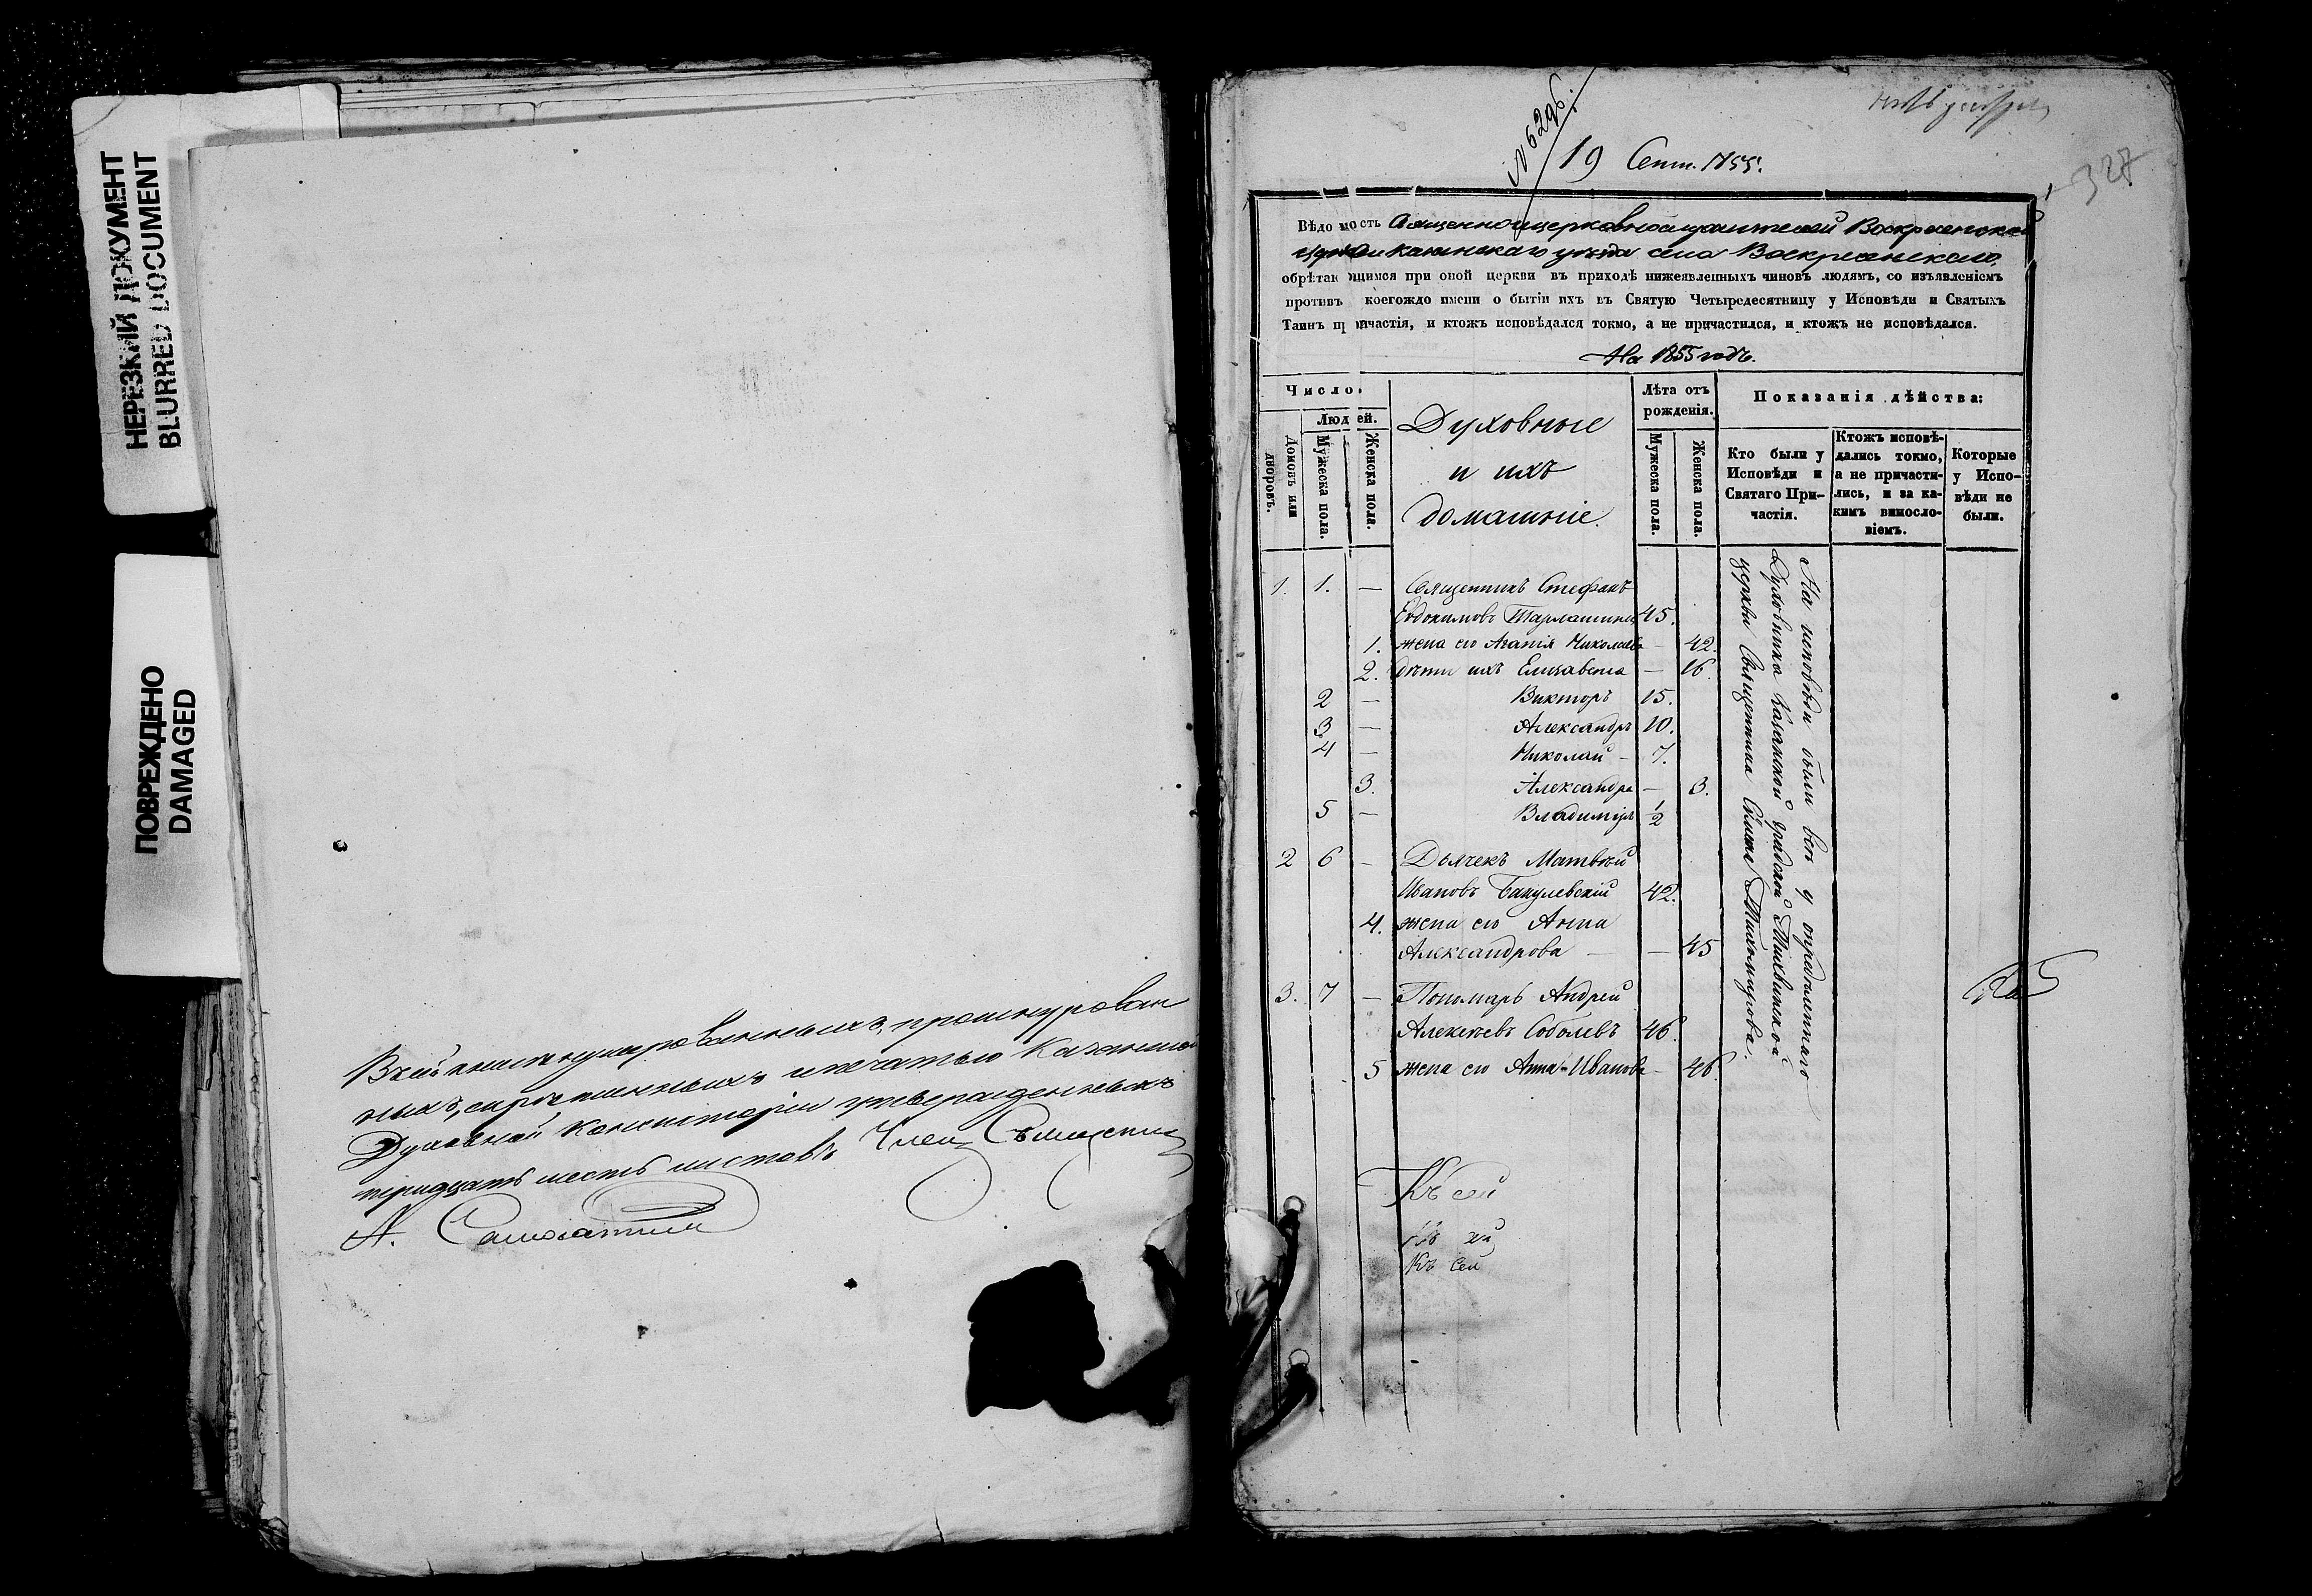 НЕРЕЗКИЙ ДОКУМЕНТ
BLURRED DOCUMENT
ПОВРЕЖДЕНО
DAMAGED
Въ сей книгѣ нумерованныхъ, прошнурован
ныхъ, скрѣпленныхъ и печатью Казанской
Духовной Консисторіи утвержденныхъ
тридцать шесть листовъ. Членъ
А.
№ 6296.
19 Сент. 1855.
327
Вѣдомость Священноцерковнослужителей Воскресенской
церкви Казанскаго уѣзда села Воскресенскаго,
обрѣтающимся при оной церкви въ приходѣ нижеявленныхъ чиновъ людямъ, со изъявленіемъ
противъ коегождо имени о бытіи ихъ въ Святую Четыредесятницу у Исповѣди и Святыхъ
Таинъ причастія, и ктожъ исповѣдался токмо, а не причастился, и ктожъ не исповѣдался.
На 1855 годъ.
Число
Людей.
Домовъ или дворовъ.
Мужеска пола.
Женска пола.
Духовные
и ихъ
домашніе.
Лѣта отъ
рожденія.
Мужеска пола.
Женска пола.
Показанія дѣйства:
Кто были у
Исповѣди и
Святаго При-
частія.
Ктожъ исповѣ-
дались токмо,
а не причасти-
лись, и за ка-
кимъ винословіемъ.
Которые
у Испо-
вѣди не
были.
1. 1. — Священникъ Стефанъ
Евдокимовъ 45.
1. жена его Агапія Николаева — 42.
2. дѣти ихъ Елизавета — 16.
2 — Викторъ 15.
3 — Александръ 10.
4 — Николай — 7.
3. Александра — 3.
5 — Владиміръ 1/2
2 6 — Дьячекъ Матвѣй
Ивановъ Бакулевскій 42.
4. жена его Анна
Александрова — — 45
3. 7 — Пономарь Андрей
Алексѣевъ Соболевъ 46.
5 жена его Анна Иванова — 46.
На исповѣди были всѣ у опредѣленнаго
Духовника Казанской градской Тихвинской
церкви Священника Тихомирова.
Къ сей
Къ сей